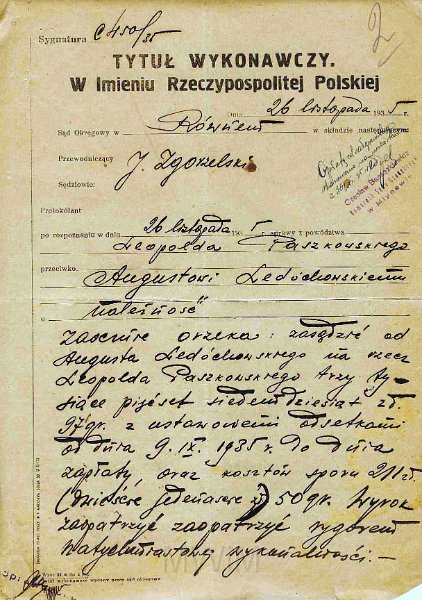 Sygnatura C 450/35
2
TYTUŁ WYKONAWCZY.
W Imieniu Rzeczypospolitej Polskiej
Dnia 26 listopada 1935 r.
Sąd Okręgowy w Równem w składzie następującym:
Przewodniczący J. Zgorzelski
Sędziowie:
Protokólant
po rozpoznaniu w dniu 26 listopada 1935 r. sprawy z powództwa
Leopolda Paszkowskiego
przeciwko Augustowi Ledóchowskiemu
o należność
zaocznie orzeka: zasądzić od
Augusta Ledóchowskiego na rzecz
Leopolda Paszkowskiego trzy ty-
siące pięćset siedemdziesiąt zł.
97 gr. z ustawowemi odsetkami
od dnia 9.IX.1935 r. do dnia
zapłaty oraz kosztów sporu 211 zł.
(dwieście jedenaście zł) 50 gr. Wyrok
zaopatrzyć zaopatrzyć rygorem
natychmiastowej wykonalności. —